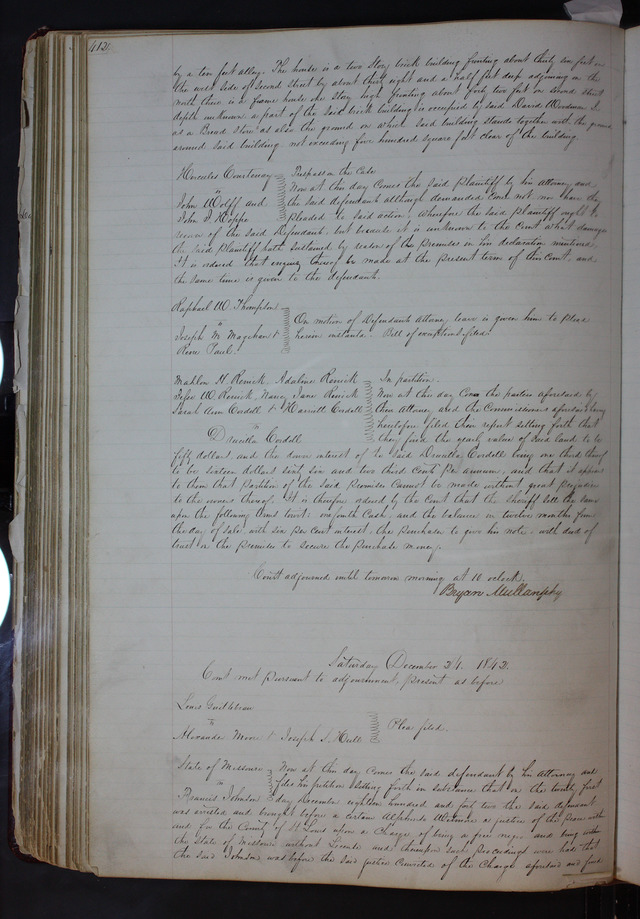 412
by a ten foot alley. The house is a two story brick building fronting about thirty six feet on
the west side of Second Street by about thirty eight and a half feet deep adjoining on the
north there is a frame house one story high fronting about forty two feet on Second Street
depth unknown a part of the said brick building is occupied by said David Woodman
as a Bread Store as also the ground on which said building stands together with the ground
around said building not exceeding five hundred square feet clear of the building
Hercules Courtenay Trespass on the Case
vs Now at this day comes the said Plaintiff by his attorney and
John Wolff and the said defendants although demanded come not nor have they
John D. Hoppe pleaded to said action; Wherefore the said Plaintiff ought to
recover of the said Defendants, but because it is unknown to the Court what damages
the said Plaintiff hath sustained by reason of the Premises in his declaration mentioned
It is ordered that enquiry thereof be made at the present term of this Court, and
the same time is given to the defendants.
Raphael W. Thompson
vs On motion of Defendants attorney leave is given him to Plead
Joseph M. Magehan & herein instanter. Bill of exceptions filed.
Rene Paul.
Mahlon H. Renick, Adaline Renick In partition.
W. Renick, Nancy Jane Renick Now at this day Come the parties aforesaid by
Sarah Ann Cordell & Harriett Cordell their Attorney and the Commissioners aforesaid having
vs heretofore filed their report setting forth that
Drucilla Cordell they find the yearly value of said land to be
fifty dollars, and the dower interest of the said Drucilla Cordell being one third thereof
to be sixteen dollars sixty six and two third Cents Per annum, and that it appears
to them that partition of the said Premises Cannot be made without great prejudice
to the owners thereof. It is therefore ordered by the Court that the Sheriff sell the same
upon the following terms towit: one fourth Cash, and the balance in twelve months from
the day of sale with six per cent interest, the purchaser to give his note with deed of
trust on the Premises to secure the purchase money.
Court adjourned until tomorrow morning at 10 oclock.
Bryan Mullanphy
Saturday December 31. 1842.
Court met Pursuant to adjournment, Present as before
Louis
vs Pleas filed.
Alexander Moore & Joseph S. Hull
State of Missouri Now at this day comes the said defendant by his attorney and
vs files his petition setting forth in substance that on the twenty first
Francis Johnson day December eighteen hundred and forty two the said defendant
was arrested and brought before a certain a justice of the peace with
and for the County of St Louis upon a Charge of being a free negro and being within
the State of Missouri without License and thereupon such proceedings were had that
the said Johnson was before the said justice Convicted of the Charge aforesaid and fined